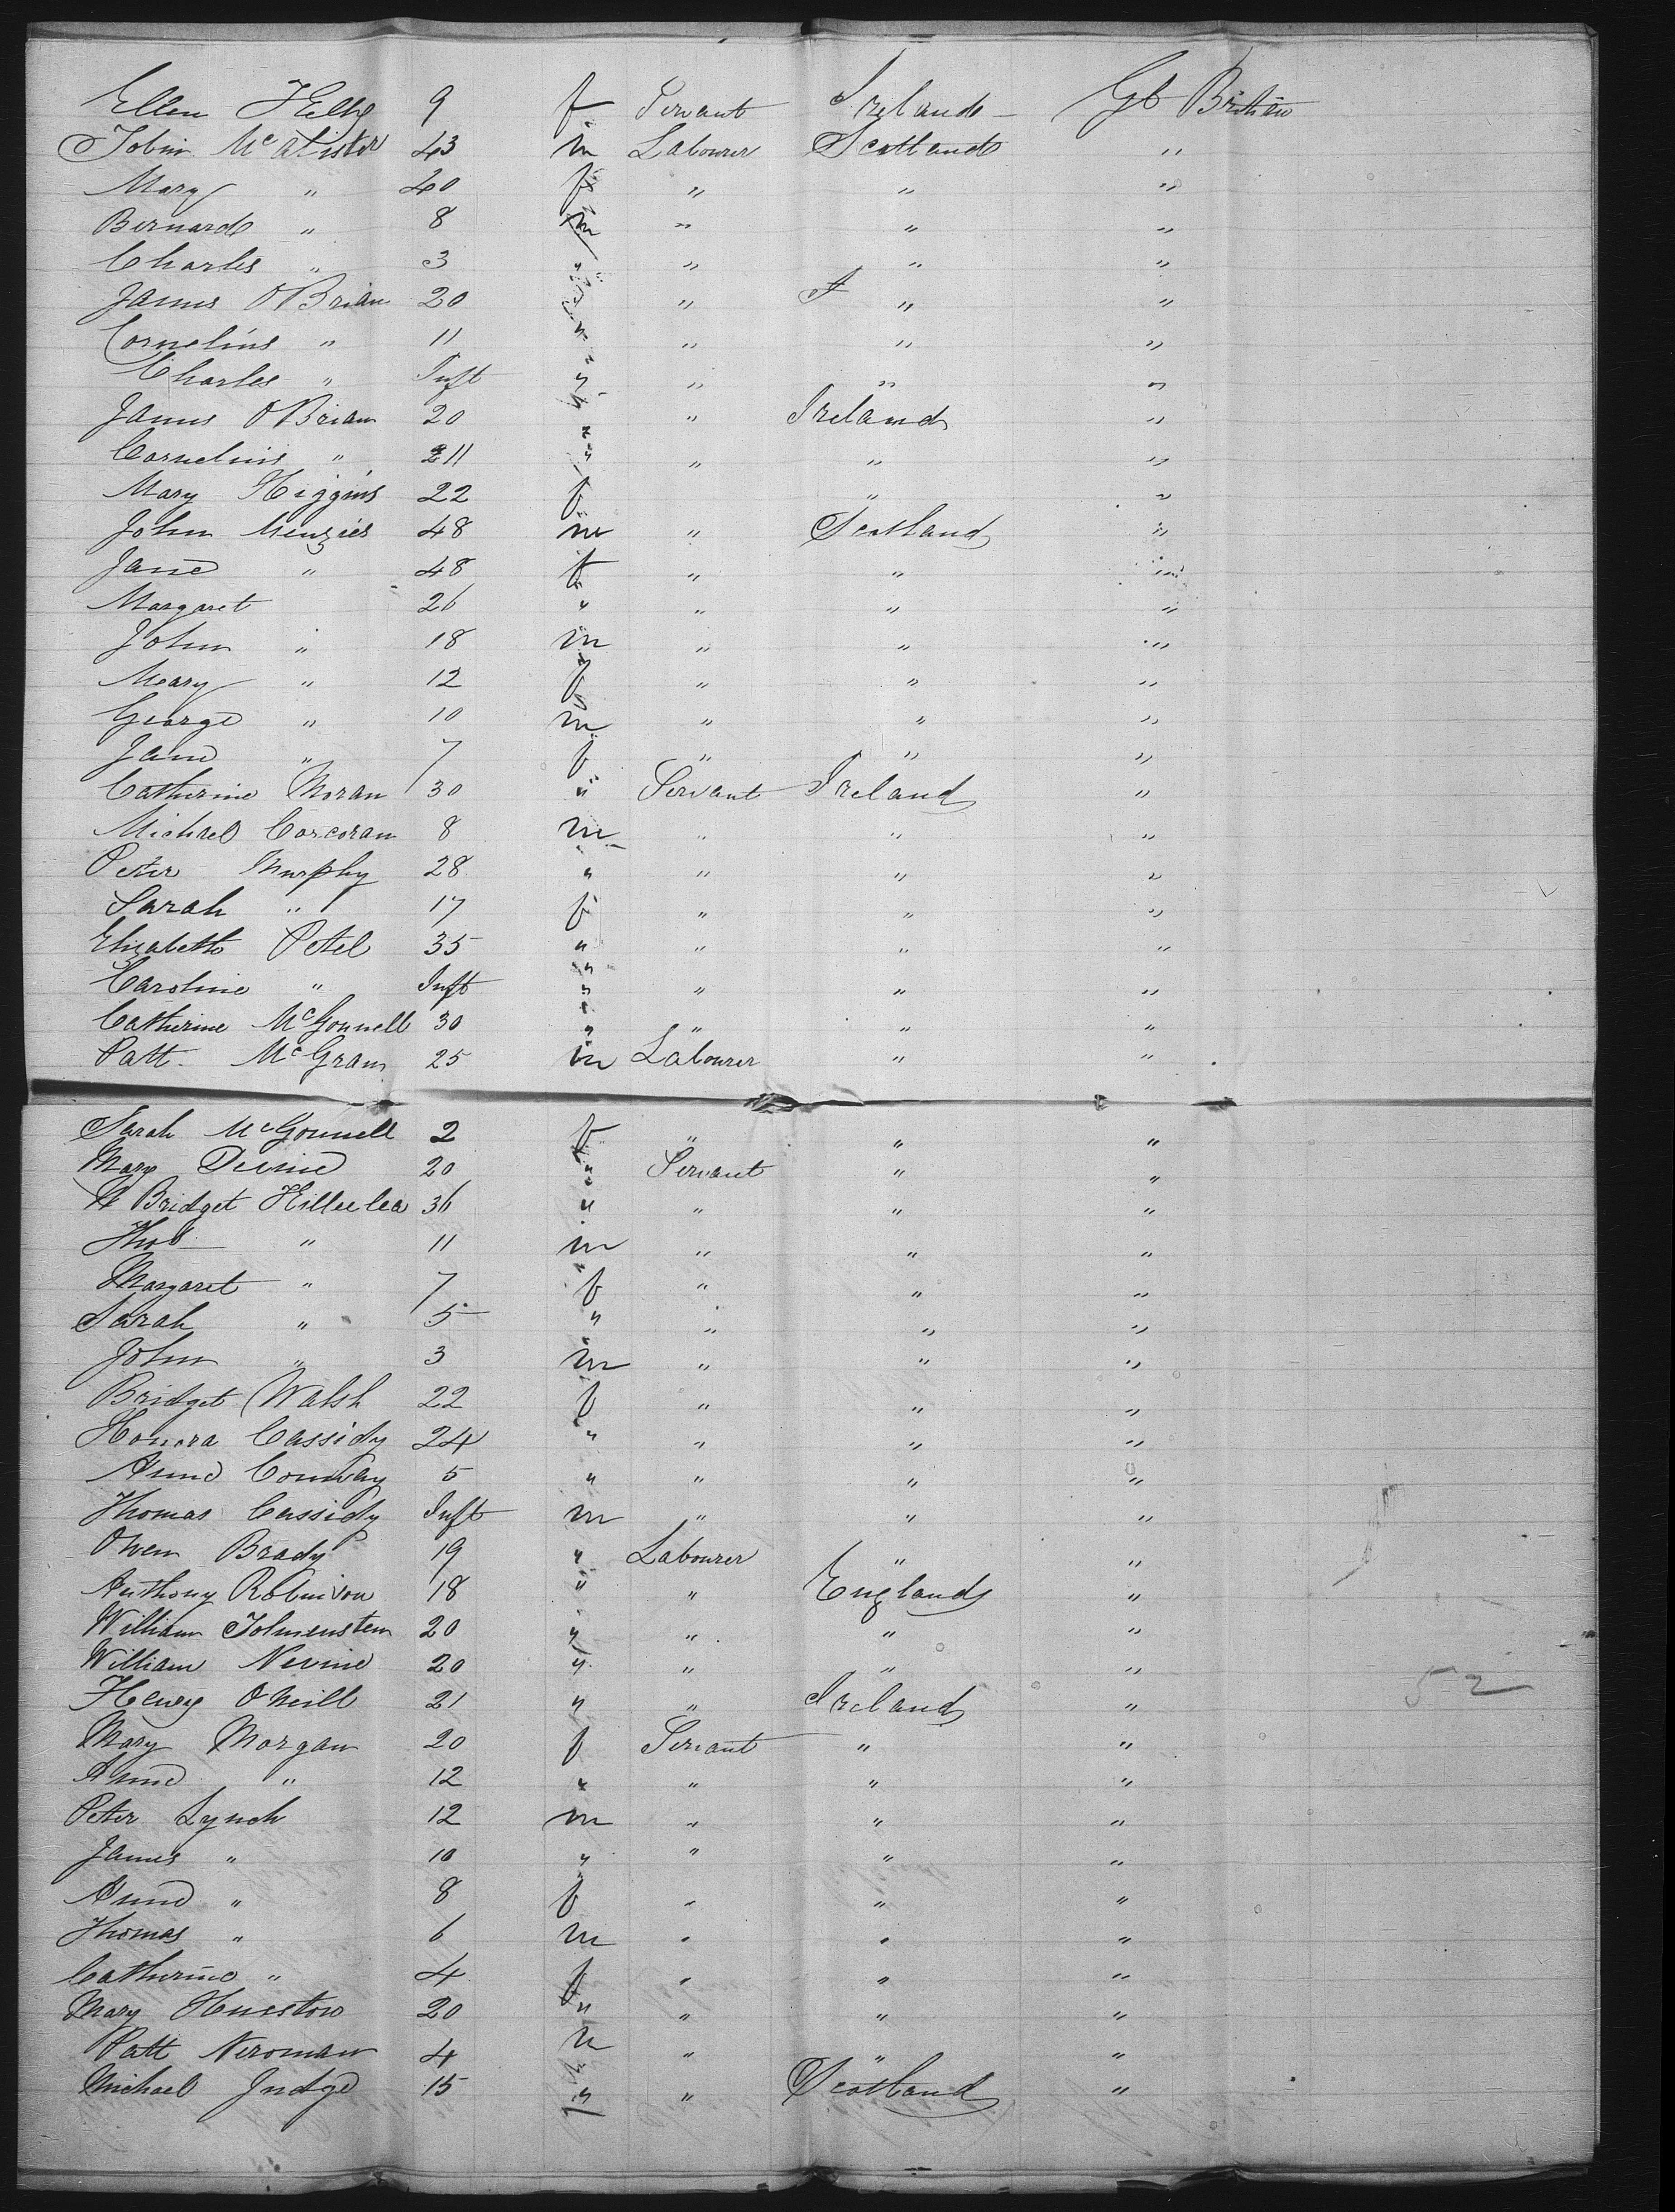 Ellen Kelly 9 f Servant Ireland Gt Britain
John McAlister 43 m Labourer Scotland "
Mary " 40 f " " "
Bernard " 8 m " " "
Charles " 3 " " " "
James OBrian 20 " " "
Cornelius " 11 " " " "
Charles " Inft " " " "
James OBrian 20 " " Ireland "
Cornelius " 11 " " " "
Mary Higgins 22 f " "
John Menzies 48 m " Scotland "
Jane " 48 f " " "
Margaret 26 " " " "
John " 18 m " " "
Mary " 12 f " " "
George " 10 m " " "
Jane " 7 f " " "
Catherine Moran 30 " Servant Ireland "
Michael Corcoran 8 m " " "
Peter Murphy 28 " " " "
Sarah " 17 f " " "
Elizabeth Petel 35 " " " "
Caroline " Inft " " " "
Catherine McGonnell 30 " " " "
Patt. McGram 25 m Labourer " "
Sarah McGonnell 2 f " " "
Mary Devine 20 " Servant " "
Bridget Killeelea 36 " " " "
Thos " 11 m " " "
Margaret " 7 f " " "
Sarah " 5 " " " "
John " 3 m " " "
Bridget Walsh 22 f " " "
Honora Cassidy 24 " " " "
Anne Conway 5 " " " "
Thomas Cassidy Inft m " " "
Owen Brady 19 " Labourer " "
Anthony Robinson 18 " " England "
William 20 " " " "
William Nevine 20 " " " "
Henry ONeill 21 " " Ireland "
52
Mary Morgan 20 f Servant " "
Anne " 12 " " " "
Peter Lynch 12 m " " "
James " 10 " " " "
Anne " 8 f " " "
Thomas " 6 m " " "
Catherine " 4 f " " "
Mary Huestow 20 " " " "
Patt Neroman 4 m " " "
Michael Judge 15 " " Scotland "